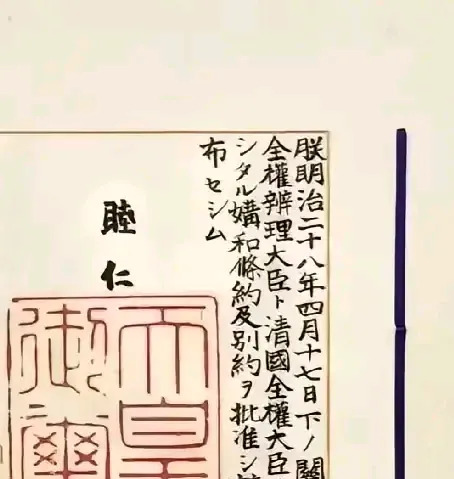 朕明治二十八年四月十七日下ノ關
全權辨理大臣ト清國全權大臣
シタル媾和條約及別約ヲ批准シ
布セシム
睦仁
天皇
御璽